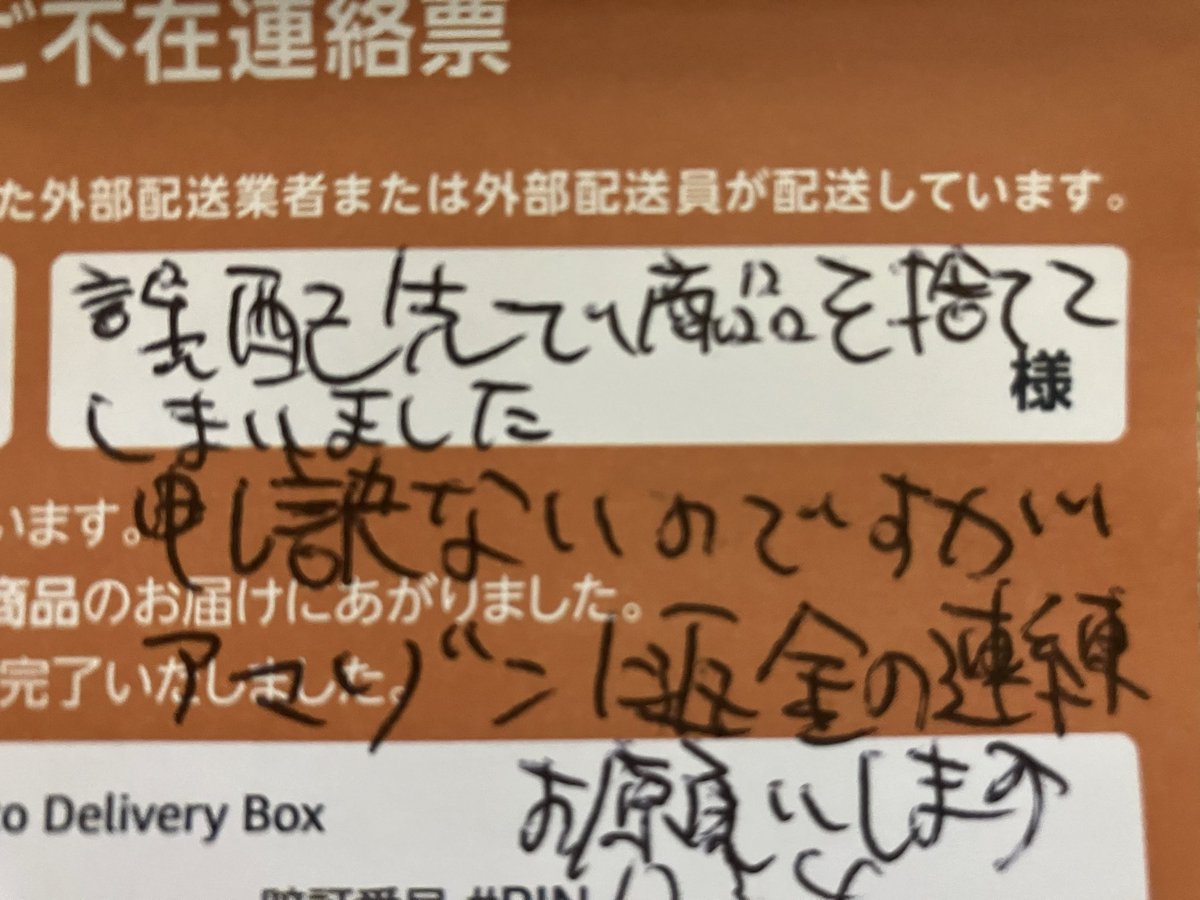 ご不在連絡票
た外部配送業者または外部配送員が配送しています。
誤配先で商品を捨てて
様
しまいました
います。
申し訳ないのですが
商品のお届けにあがりました。
アマゾンに返金の連練
完了いたしました。
to Delivery Box
お願いします
暗証番号 #PIN